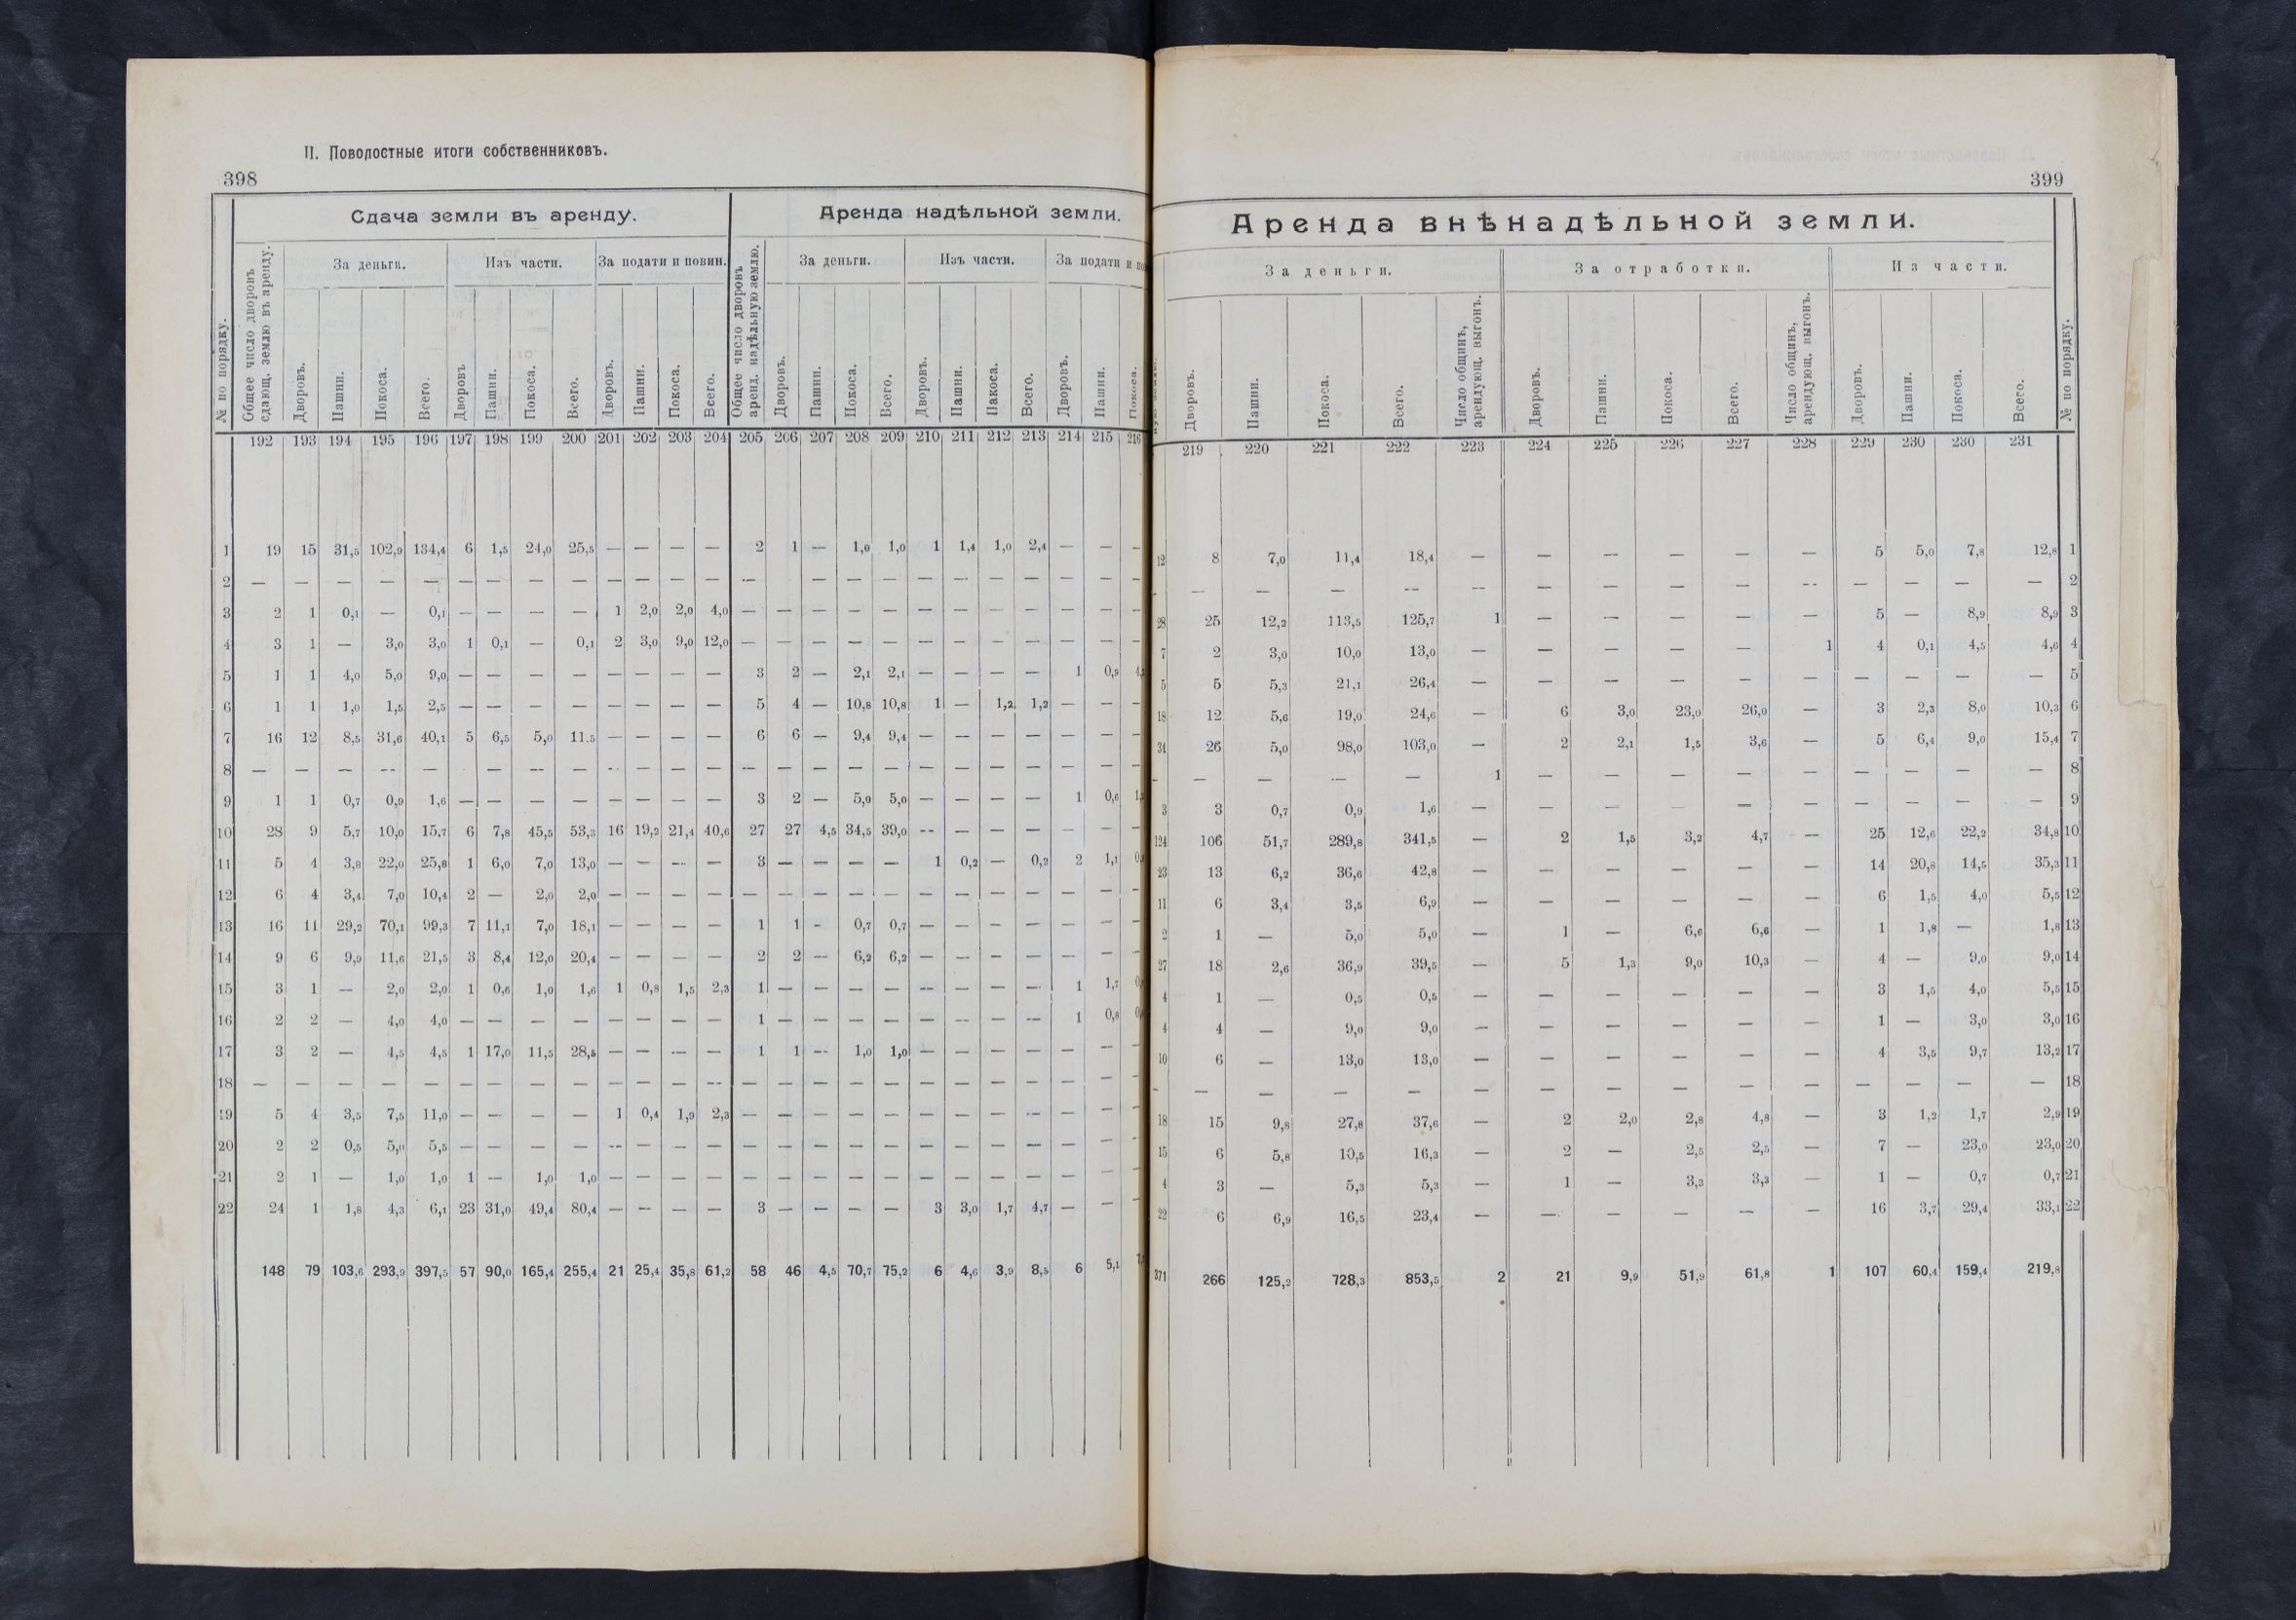 II. Поволостные итоги собственниковъ.
398
Сдача земли въ аренду. Аренда надѣльной земли.
№ по порядку. Общее число дворовъ сдающ. землю въ аренду. За деньги. Изъ части. За подати и повин. Общее число дворовъ аренд. надѣльную землю. За деньги. Изъ части. За подати и
Дворовъ. Пашни. Покоса. Всего. Дворовъ Пашни. Покоса. Всего. Дворовъ. Пашни. Покоса. Всего. Дворовъ. Пашни. Покоса. Всего. Дворовъ. Пашни. Пакоса. Всего. Дворовъ. Пашни. Покоса.
192 193 194 195 196 197 198 199 200 201 202 203 204 205 206 207 208 209 210 211 212 213 214 215 216
1 19 15 31,5 102,9 134,4 6 1,5 24,0 25,5 — — — — 2 1 — 1,0 1,0 1 1,4 1,0 2,4 — — —
2 — — — — — — — — — — — — — — — — — — — — — — — —
3 2 1 0,1 — 0,1 — — — — 1 2,0 2,0 4,0 — — — — — — — — — — — —
4 3 1 — 3,0 3,0 1 0,1 — 0,1 2 3,0 9,0 12,0 — — — — — — — — — — — —
5 1 1 4,0 5,0 9,0 — — — — — — — — 3 2 — 2,1 2,1 — — — — 1 0,9
6 1 1 1,0 1,5 2,5 — — — — — — — — 5 4 — 10,8 10,8 1 — 1,2 1,2 — — —
7 16 12 8,5 31,6 40,1 5 6,5 5,0 11.5 — — — — 6 6 — 9,4 9,4 — — — — — — —
8 — — — — — — — — — — — — — — — — — — — — — — — —
9 1 1 0,7 0,9 1,6 — — — — — — — — 3 2 — 5,0 5,0 — — — — 1 0,6
10 28 9 5,7 10,0 15,7 6 7,8 45,5 53,3 16 19,2 21,4 40,6 27 27 4,5 34,5 39,0 — — — — — — —
11 5 4 3,8 22,0 25,8 1 6,0 7,0 13,0 — — — — 3 — — — — 1 0,2 — 0,2 2 1,1
12 6 4 3,4 7,0 10,4 2 — 2,0 2,0 — — — — — — — — — — — — — — — —
13 16 11 29,2 70,1 99,3 7 11,1 7,0 18,1 — — — — 1 1 - 0,7 0,7 — — — — — — —
14 9 6 9,9 11,6 21,5 3 8,4 12,0 20,4 — — — — 2 2 — 6,2 6,2 — — — — — — —
15 3 1 — 2,0 2,0 1 0,6 1,0 1,6 1 0,8 1,5 2,3 1 — — — — — — — — 1 1,7
16 2 2 — 4,0 4,0 — — — — — — — — 1 — — — — — — — — 1 0,8
17 3 2 — 4,5 4,5 1 17,0 11,5 28,5 — — — — 1 1 — 1,0 1,0 — — — — — — —
18 — — — — — — — — — — — — — — — — — — — — — — — — —
19 5 4 3,5 7,5 11,0 — — — — 1 0,4 1,9 2,3 — — — — — — — — — — — —
20 2 2 0,5 5,0 5,5 — — — — — — — — — — — — — — — — — — — —
21 2 1 — 1,0 1,0 1 — 1,0 1,0 — — — — — — — — — — — — — — — —
22 24 1 1,8 4,3 6,1 23 31,0 49,4 80,4 — — — — 3 — — — — 3 3,0 1,7 4,7 — — —
148 79 103,6 293,9 397,5 57 90,0 165,4 255,4 21 25,4 35,8 61,2 58 46 4,5 70,7 75,2 6 4,6 3,9 8,5 6 5,1
399
Аренда внѣнадѣльной земли.
За деньги. За отработки. Из части. № по порядку.
Дворовъ. Пашни. Покоса. Всего. Число общинъ, арендующ. выгонъ. Дворовъ. Пашни. Покоса. Всего. Число общинъ, арендующ. выгонъ. Дворовъ. Пашни. Покоса. Всего.
219 220 221 222 223 224 225 226 227 228 229 230 230 231
12 8 7,0 11,4 18,4 — — — — — — 5 5,0 7,8 12,8 1
— — — — — — — — — — — — — — — 2
28 25 12,2 113,5 125,7 1 — — — — — 5 — 8,9 8,9 3
7 2 3,0 10,0 13,0 — — — — — 1 4 0,1 4,5 4,6 4
5 5 5,3 21,1 26,4 — — — — — — — — — — 5
18 12 5,6 19,0 24,6 — 6 3,0 23,0 26,0 — 3 2,3 8,0 10,3 6
31 26 5,0 98,0 103,0 — 2 2,1 1,5 3,6 — 5 6,4 9,0 15,4 7
— — — — — 1 — — — — — — — — — 8
3 3 0,7 0,9 1,6 — — — — — — — — — — 9
124 106 51,7 289,8 341,5 — 2 1,5 3,2 4,7 — 25 12,6 22,2 34,8 10
23 13 6,2 36,6 42,8 — — — — — — 14 20,8 14,5 35,3 11
11 6 3,4 3,5 6,9 — — — — — — 6 1,5 4,0 5,5 12
2 1 — 5,0 5,0 — 1 — 6,6 6,6 — 1 1,8 — 1,8 13
27 18 2,6 36,9 39,5 — 5 1,3 9,0 10,3 — 4 — 9,0 9,0 14
4 1 — 0,5 0,5 — — — — — — 3 1,5 4,0 5,5 15
4 4 — 9,0 9,0 — — — — — — 1 — 3,0 3,0 16
10 6 — 13,0 13,0 — — — — — — 4 3,5 9,7 13,2 17
— — — — — — — — — — — — — — — 18
18 15 9,8 27,8 37,6 — 2 2,0 2,8 4,8 — 3 1,2 1,7 2,9 19
15 6 5,8 10,5 16,3 — 2 — 2,5 2,5 — 7 — 23,0 23,0 20
4 3 — 5,3 5,3 — 1 — 3,3 3,3 — 1 — 0,7 0,7 21
22 6 6,9 16,5 23,4 — — — — — — 16 3,7 29,4 33,1 22
371 266 125,2 728,3 853,5 2 21 9,9 51,9 61,8 1 107 60,4 159,4 219,8